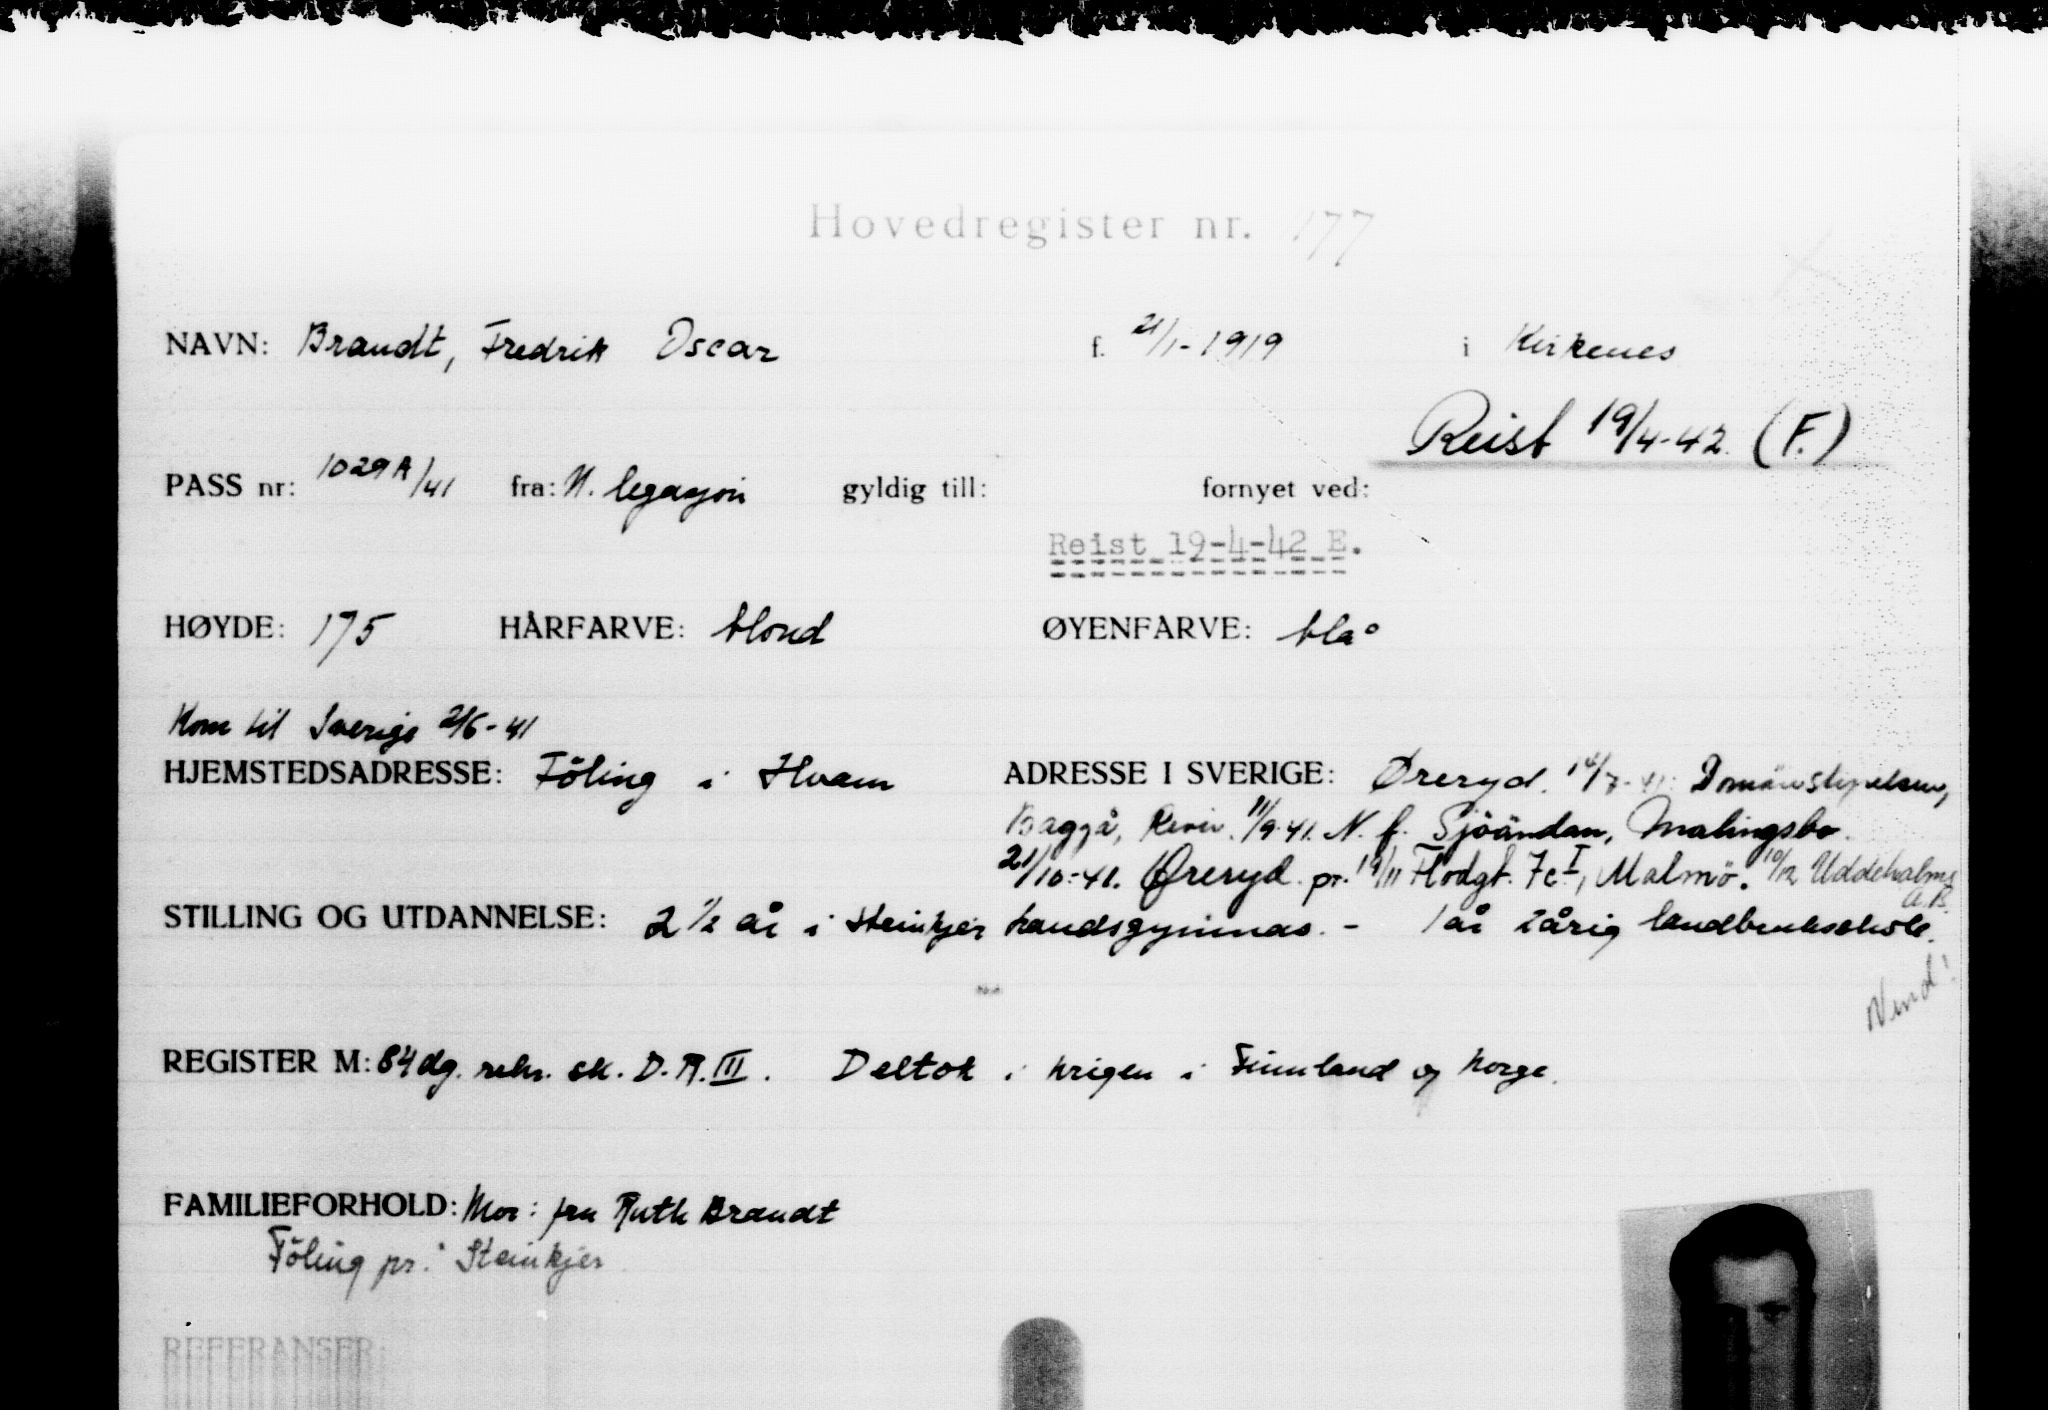 Hovedregister nr. 177
NAVN: Brandt, Fredrik Oscar f. 21/1-1919 i Kirkenes
Reist 19/4-42. (F.)
PASS nr: 1029A/41 fra: N. legasjon gyldig till: fornyet ved:
Reist 19-4-42 E.
HØYDE: 175 HÅRFARVE: blond ØYENFARVE: blå
Kom til Sverige 2/6-41
HJEMSTEDSADRESSE: Föling i Hvam ADRESSE I SVERIGE: Øreryd. 14/7-41: Domänstyrelsen,
Baggå, Revir. 11/9-41. N. f. Sjöändan, Malingsbo.
21/10-41. Øreryd. pr. 19/11 Flodgt. 7c I, Malmö. 10/12 Uddeholms
A.B.
STILLING OG UTDANNELSE: 2 1/2 år i Steinkjer landsgymnas. - 1 år 2årig landbruksskole.
Vend!
REGISTER M: 84 dg. rekr. sk. D.R. III. Deltok i krigen i Finnland og Norge.
FAMILIEFORHOLD: Mor: fru Ruth Brandt
Föling pr. Steinkjer
REFERANSER: